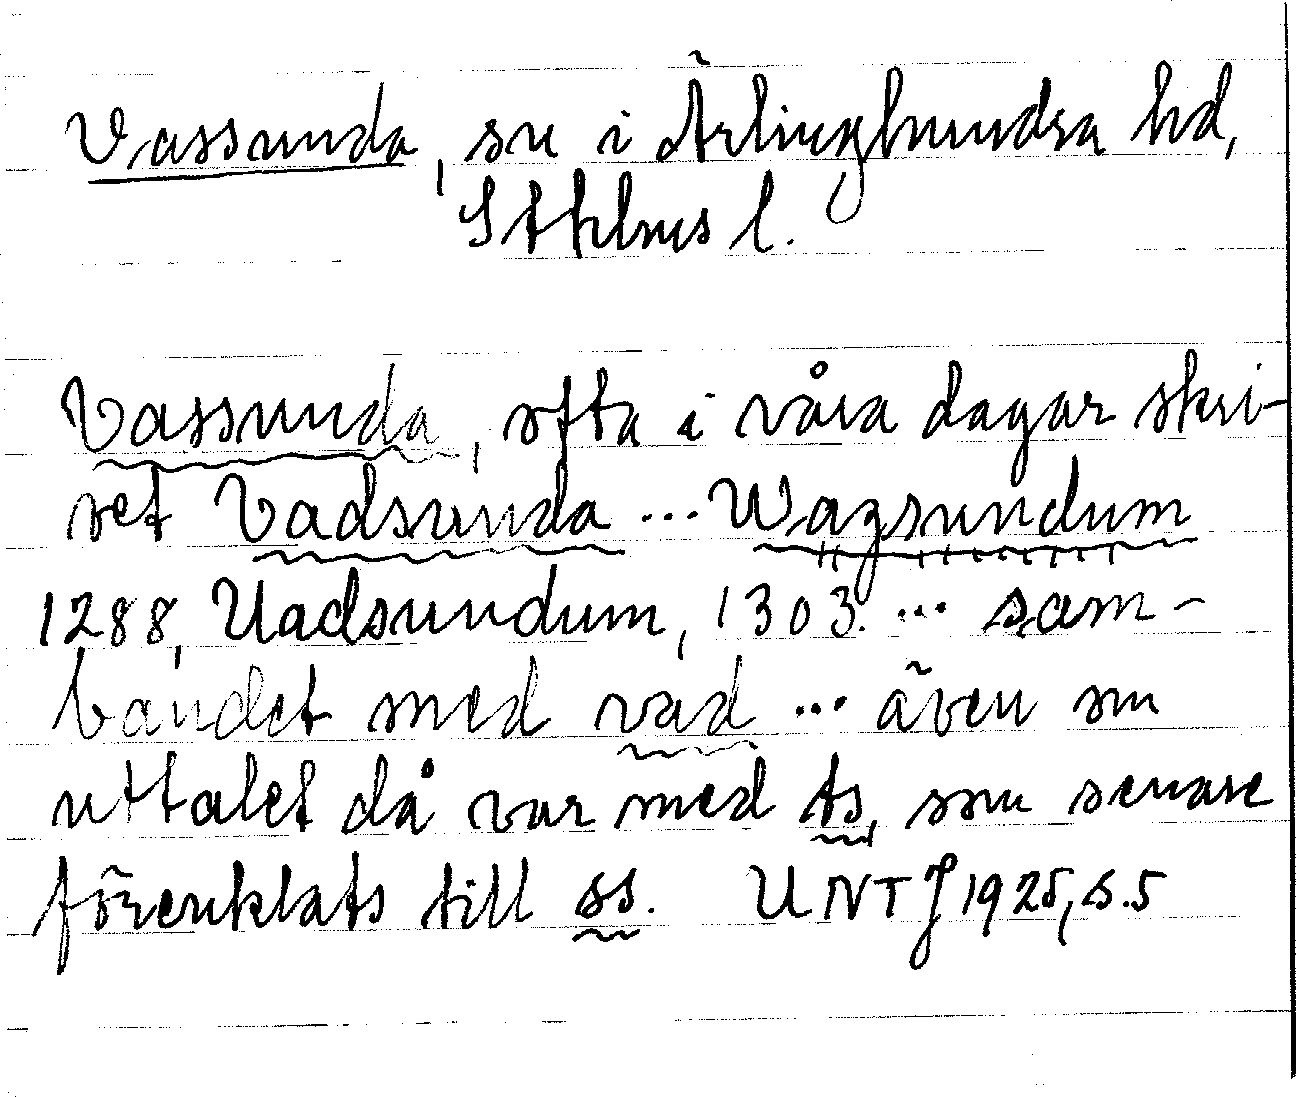 Vassunda, sn i Ärlinghundra hd,
Sthlms l.
Vassunda, ofta i våra dagar skri-
vet Vadsunda ... Wazsundum
1288, Uadsundum, 1303. ... sam-
bandet med vad ... även om
uttalet då var med ts, som senare
förenklats till ss. UNTJ 1925, s. 5